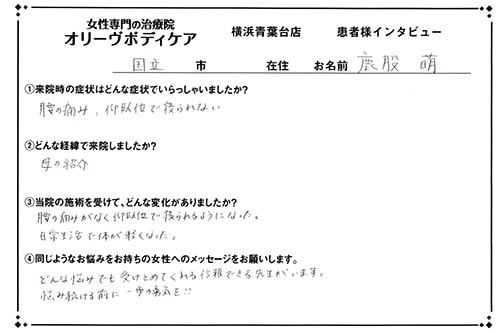 女性専門の治療院
オリーヴボディケア 横浜青葉台店 患者様インタビュー
国立 市 在住 お名前 鹿股 萌
①来院時の症状はどんな症状でいらっしゃいましたか?
腰の痛み、仰臥位で寝られない
②どんな経緯で来院しましたか?
母の紹介
③当院の施術を受けて、どんな変化がありましたか?
腰の痛みがなく仰臥位で寝られるようになった。
日常生活で体が軽くなった。
④同じようなお悩みをお持ちの女性へのメッセージをお願いします。
どんな悩みでも受けとめてくれる信頼できる先生がいます。
悩み続ける前に一歩の勇気を!!